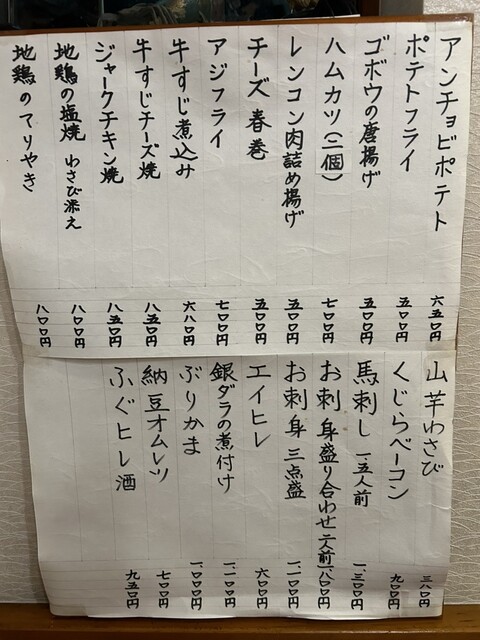 アンチョビポテト 六五〇円
ポテトフライ 五〇〇円
ゴボウの唐揚げ 五〇〇円
ハムカツ(二個) 七〇〇円
レンコン肉詰め揚げ 五〇〇円
チーズ春巻 五〇〇円
アジフライ 七〇〇円
牛すじ煮込み 六八〇円
牛すじチーズ焼 八五〇円
ジャークチキン焼 八五〇円
地鶏の塩焼 わさび添え 八〇〇円
地鶏のてりやき 八〇〇円
山芋わさび 三八〇円
くじらベーコン 九〇〇円
馬刺し 一.五人前 一.三〇〇円
お刺身盛り合わせ 一人前 一.八〇〇円
お刺身 三点盛 一.二〇〇円
エイヒレ 六〇〇円
銀ダラの煮付け 一.二〇〇円
ぶりかま 一.〇〇〇円
納豆オムレツ 七〇〇円
ふぐヒレ酒 九五〇円